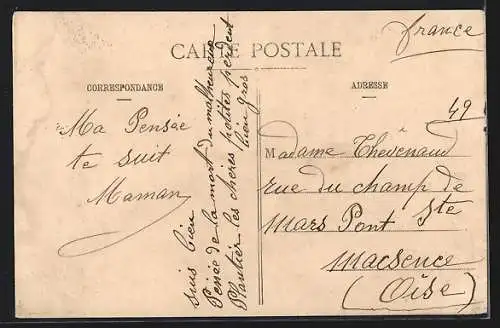 France
CARTE POSTALE
CORRESPONDANCE
ADRESSE
49
Ma Pensée
te suit
Maman
suis bien
Peinée de la mort du malheureux
Plantier les chères petites perdent
bien gros
Madame Thévenaud
rue du champ de
Mars Pont Ste
Macsence
(Oise)